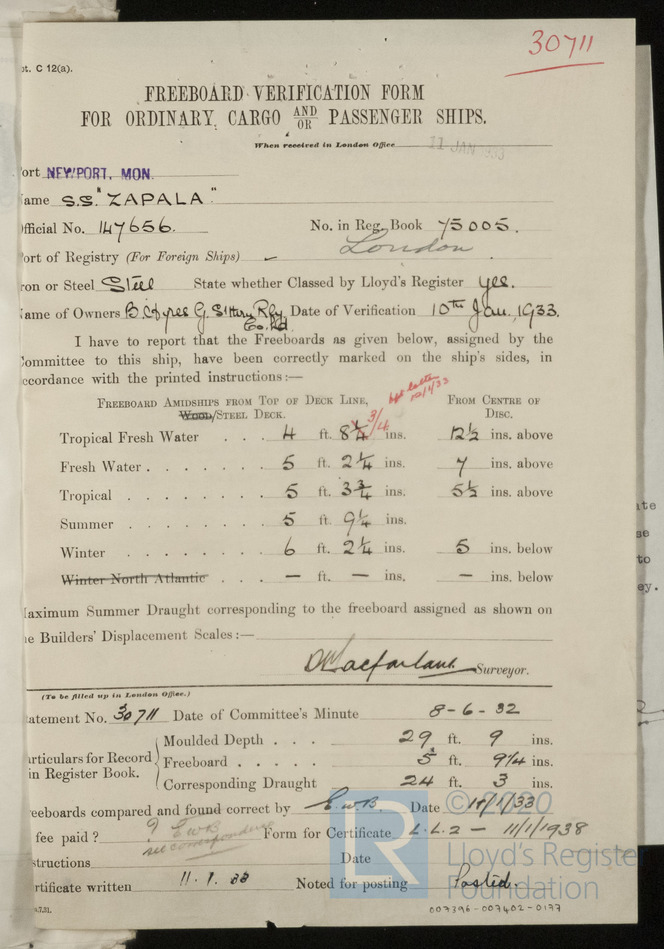 30711
pt. C 12(a).
FREEBOARD VERIFICATION FORM
FOR ORDINARY, CARGO AND/OR PASSENGER SHIPS.
When received in London Office 11 JAN 1933
Port NEWPORT, MON.
Name S.S. "ZAPALA"
Official No. 147656. No. in Reg. Book 75005.
Port of Registry (For Foreign Ships) London
Iron or Steel Steel State whether Classed by Lloyd's Register Yes.
Name of Owners B. Ayres G. Sthrn Rly Co. Ltd Date of Verification 10th Jan., 1933.
I have to report that the Freeboards as given below, assigned by the
Committee to this ship, have been correctly marked on the ship's sides, in
accordance with the printed instructions:—
letter 10/1/33
FREEBOARD AMIDSHIPS FROM TOP OF DECK LINE, WOOD/STEEL DECK. FROM CENTRE OF DISC.
Tropical Fresh Water . . . 4 ft. 8 1/4 3/4 ins. 12 1/2 ins. above
Fresh Water . . . . . . . 5 ft. 2 1/4 ins. 7 ins. above
Tropical . . . . . . . . 5 ft. 3 3/4 ins. 5 1/2 ins. above
Summer . . . . . . . . 5 ft. 9 1/4 ins.
Winter . . . . . . . . 6 ft. 2 1/4 ins. 5 ins. below
Winter North Atlantic . . . — ft. — ins. — ins. below
Maximum Summer Draught corresponding to the freeboard assigned as shown on
the Builders' Displacement Scales:—
D Macfarlane Surveyor.
(To be filled up in London Office.)
Statement No. 30711 Date of Committee's Minute 8-6-32
Particulars for Record in Register Book.
Moulded Depth . . . 29 ft. 9 ins.
Freeboard . . . . . 5 ft. 9 1/4 ins.
Corresponding Draught 24 ft. 3 ins.
Freeboards compared and found correct by E.W.B. Date 11/1/33
fee paid? ? EWB see correspondence Form for Certificate L.L.2 — 11/1/1938
Instructions Date
Certificate written 11.1.33 Noted for posting Posted.
.7.31.
007396-007402-0177
© 2020
LR
Lloyd's Register
Foundation
ate
se
to
ey.